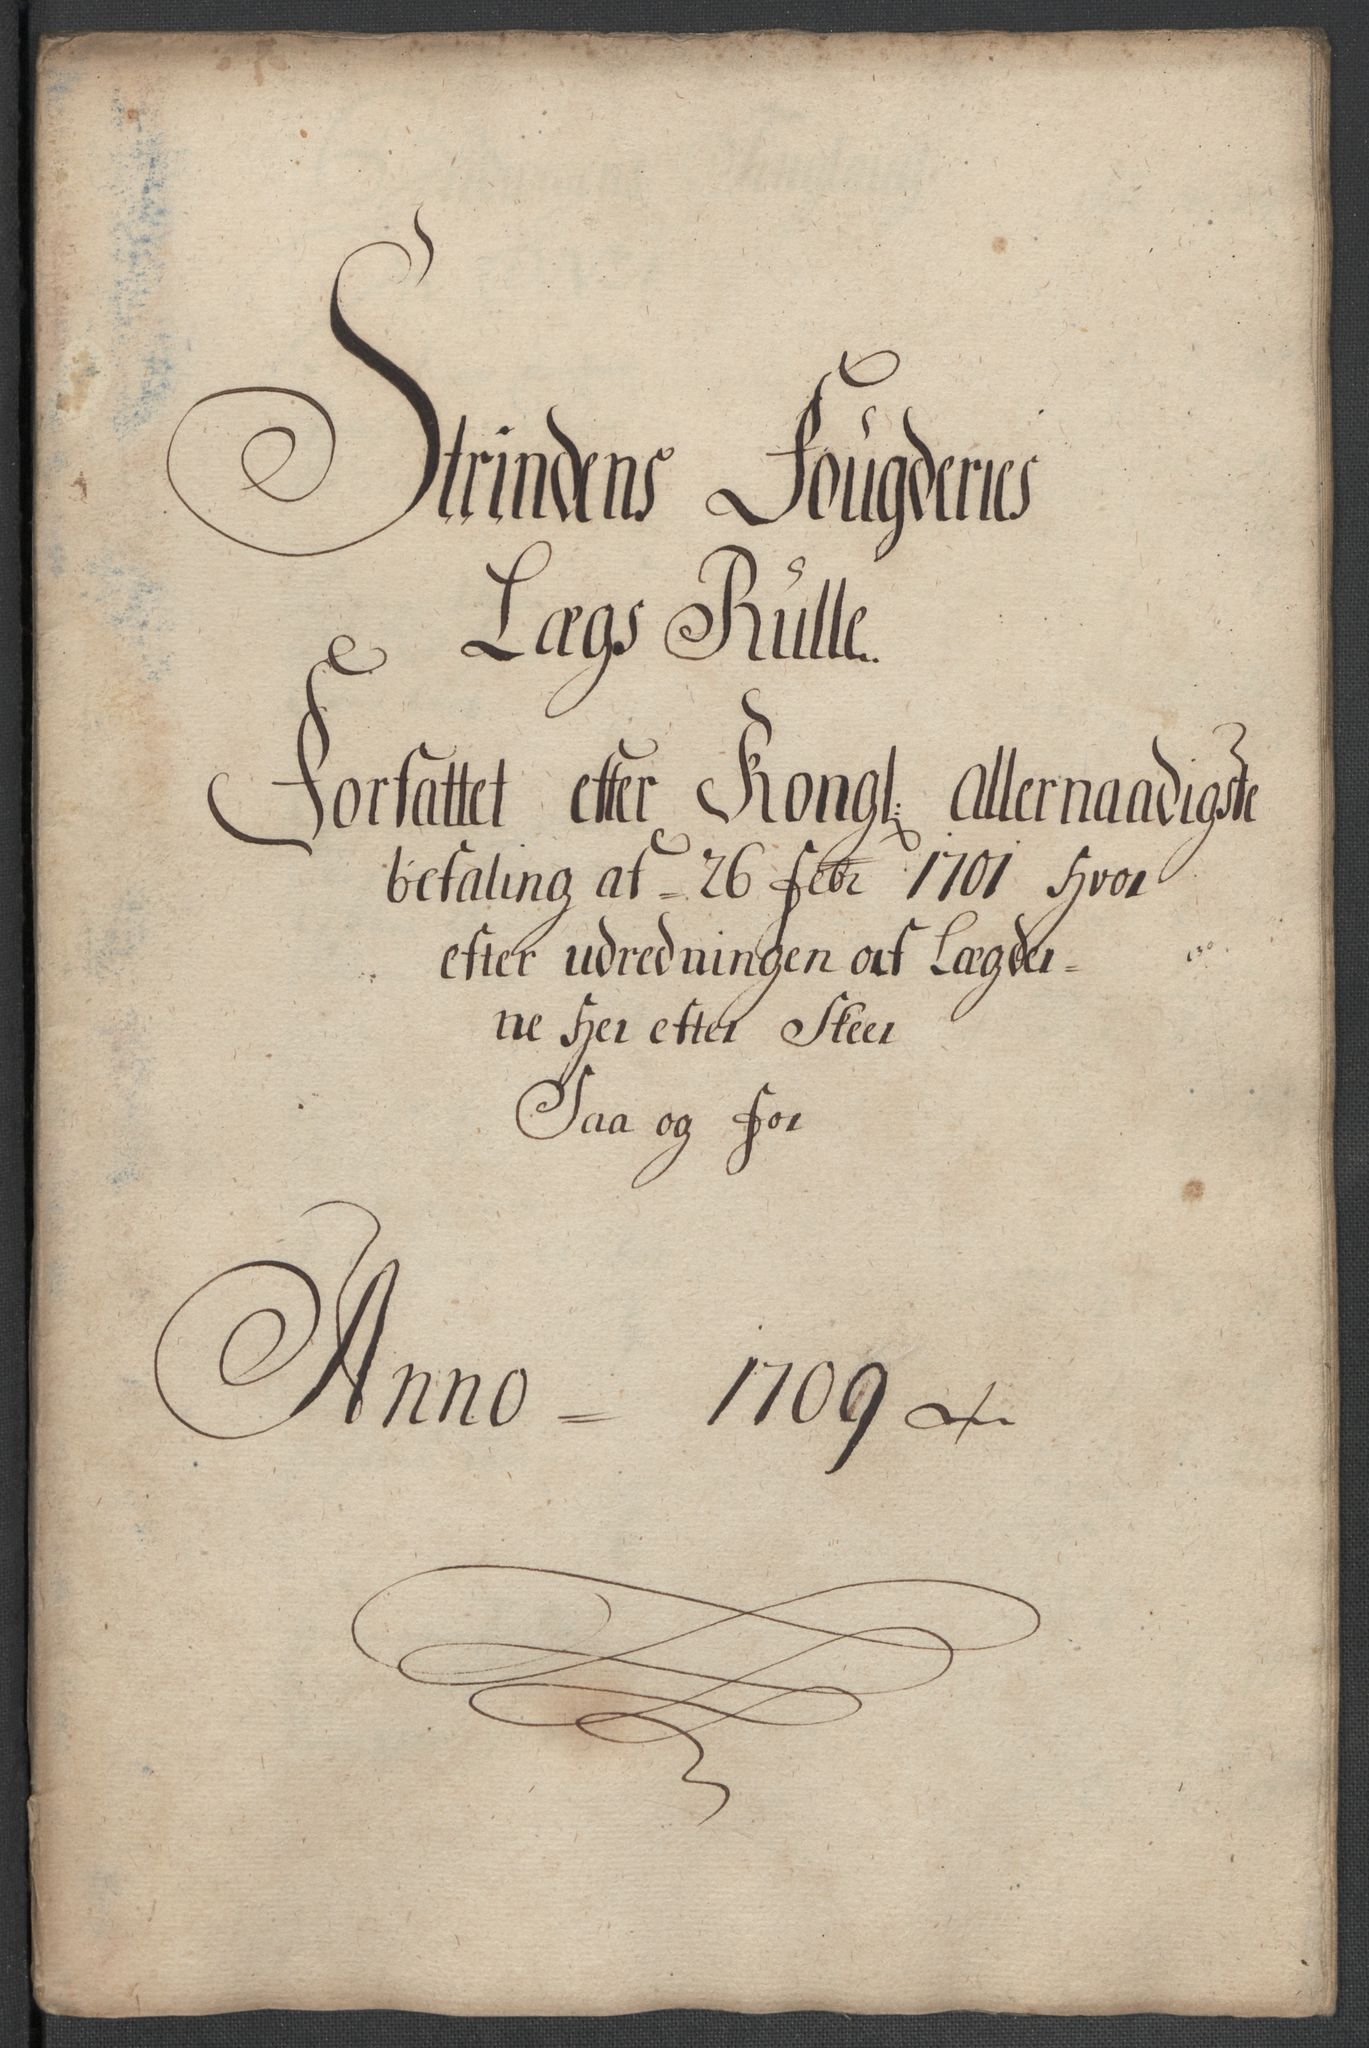 Strindens Fougderies
Lægs Rulle.
Forfattet efter Kongl: allernaadigste
befaling af 26 febr 1701 hvor
efter udredningen af Lægder=
ne her efter Skeer
Saa og for
Anno = 1709